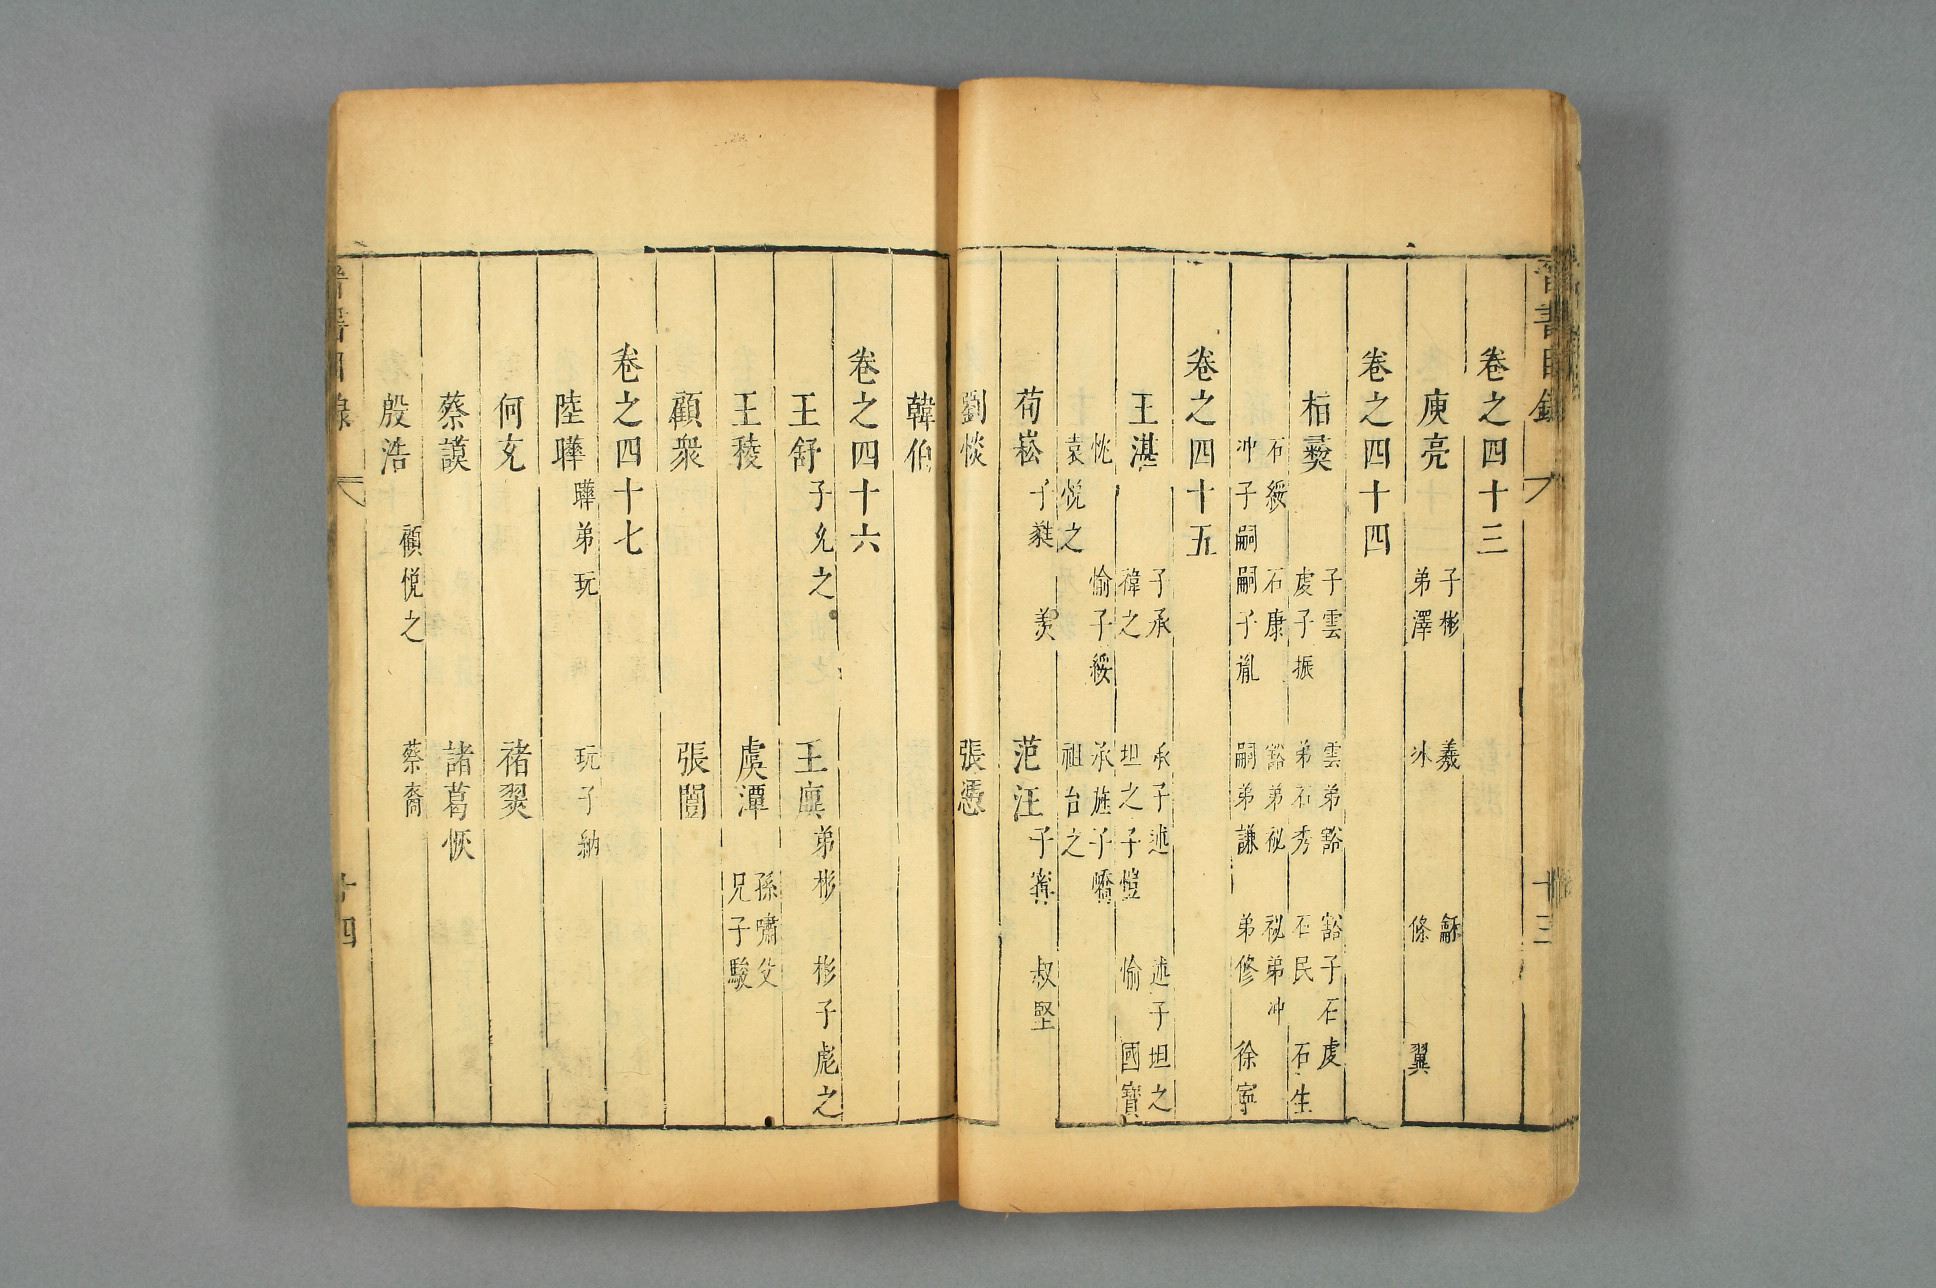 晉書目錄
十三
卷之四十三
庾亮 子彬 羲 龢 弟澤 冰 條 翼
卷之四十四
桓彝 子雲 雲弟豁 豁子石虔 虔子振 弟石秀 石民 石生
石綏 石康 豁弟祕 祕弟沖 沖子嗣 嗣子胤 嗣弟謙 弟修 徐寧
卷之四十五
王湛 子承 承子述 述子坦之 禕之 坦之子愷 愉 國寶
忱 愉子綏 承族子嶠 袁悅之 祖台之
荀崧 子蕤 羨 范汪 子甯 叔堅
劉惔 張憑
韓伯
卷之四十六
王舒 子允之 王廙 弟彬 彬子彪之
王稜 虞潭 孫嘯父 兄子駿
顧眾 張闓
卷之四十七
陸曄 曄弟玩 玩子納
何充 褚翜
蔡謨 諸葛恢
殷浩 顧悅之 蔡裔
晉書目錄
十四